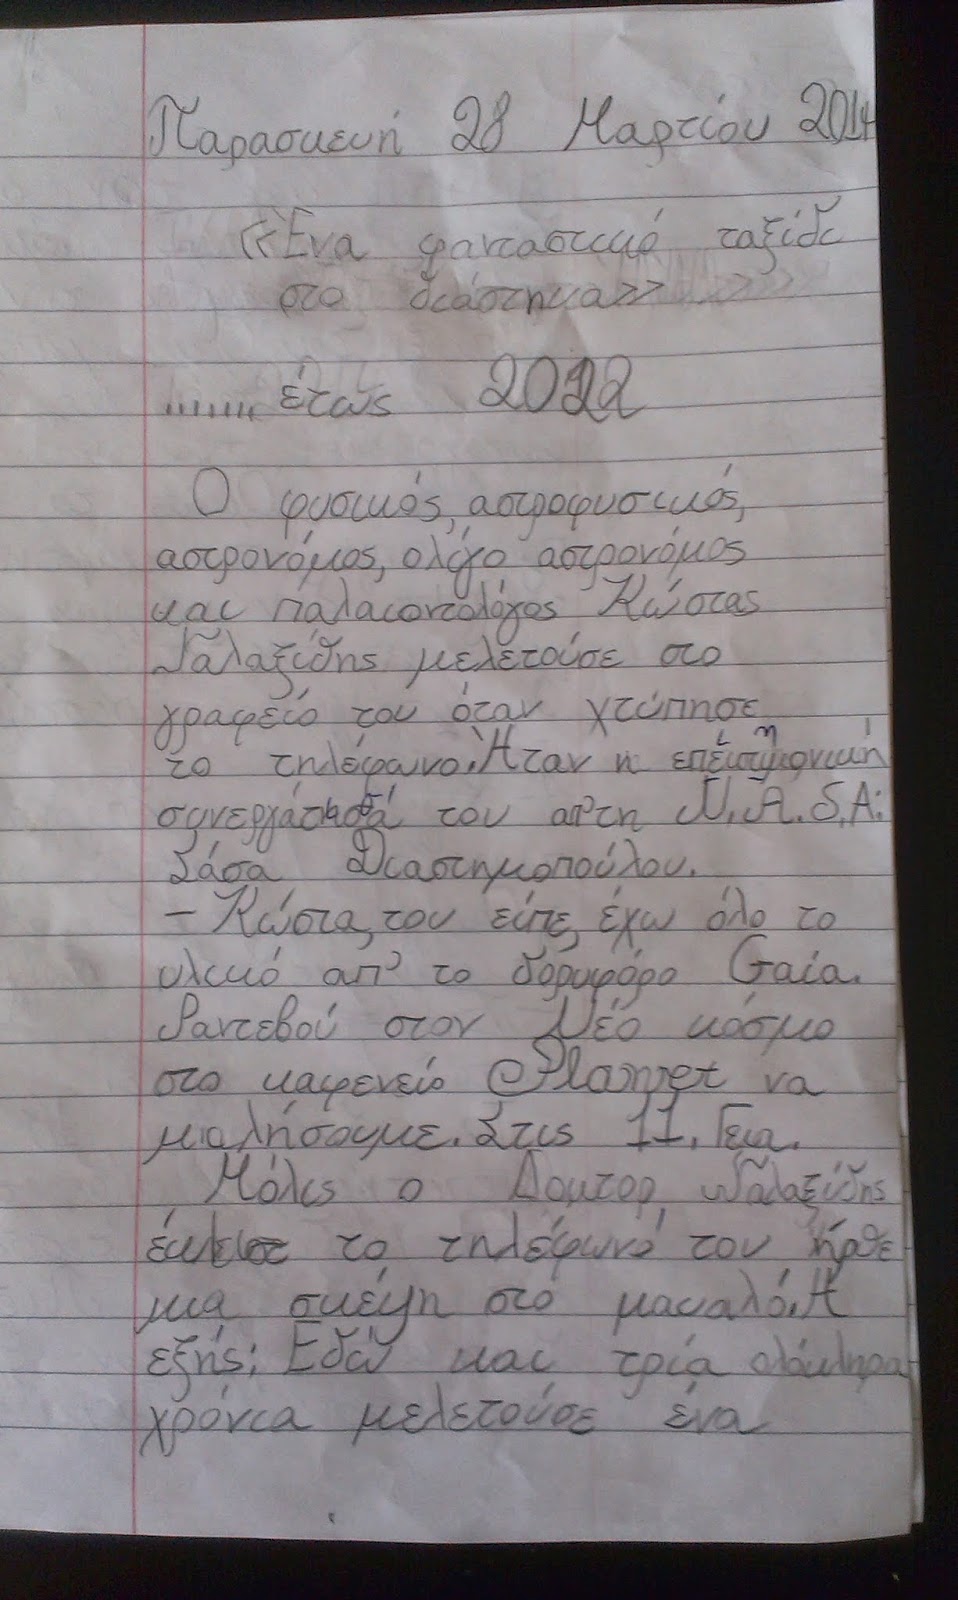 Παρασκευή 28 Μαρτίου 2014
«Ένα φανταστικό ταξίδι
στο διάστημα»
....... έτως 2022
Ο φυσικός, αστροφυσικός,
αστρονόμος, ολίγο αστρονόμος
και παλαιοντολόγος Κώστας
Γαλαξίδης μελετούσε στο
γραφείο του όταν χτύπησε
το τηλέφωνο. Ήταν η επιστημονική
συνεργάτιδά του απ'τη N.A.S.A:
Σάσα Διαστημοπούλου.
- Κώστα, του είπε, έχω όλο το
υλικό απ' το δορυφόρο Gaia.
Ραντεβού στον Νέο κόσμο
στο καφενείο Planet να
μιαλήσουμε. Στις 11. Γεια.
Μόλις ο Δοκτορ Γαλαξίδης
έκλεισε το τηλέφωνό του ήρθε
μια σκέψη στό μαυαλό. Η
εξής: Εδώ και τρία ολόκληρα
χρόνια μελετούσε ένα